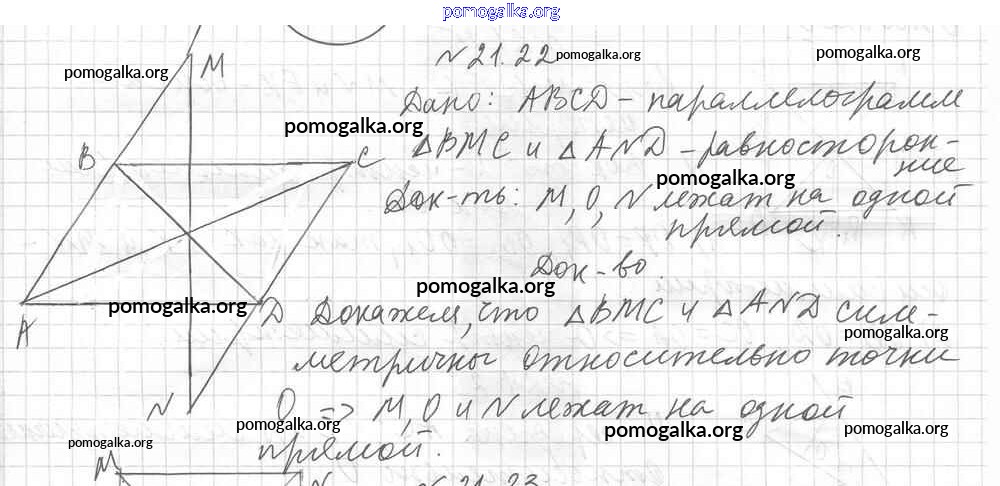 pomogalka.org
M
pomogalka.org
N 21.22 pomogalka.org
pomogalka.org
Дано: ABCD - параллелограмм
pomogalka.org
B
C
ΔBMC и ΔAND - равносторон-
ние
pomogalka.org
Док-ть: M, O, N лежат на одной
прямой.
Док-во.
pomogalka.org
pomogalka.org
A
D
Докажем, что ΔBMC и ΔAND сим-
pomogalka.org
метричны относительно точки
N
O => M, O и N лежат на одной
pomogalka.org
pomogalka.org
pomogalka.org
прямой.
M
N
N 21.23